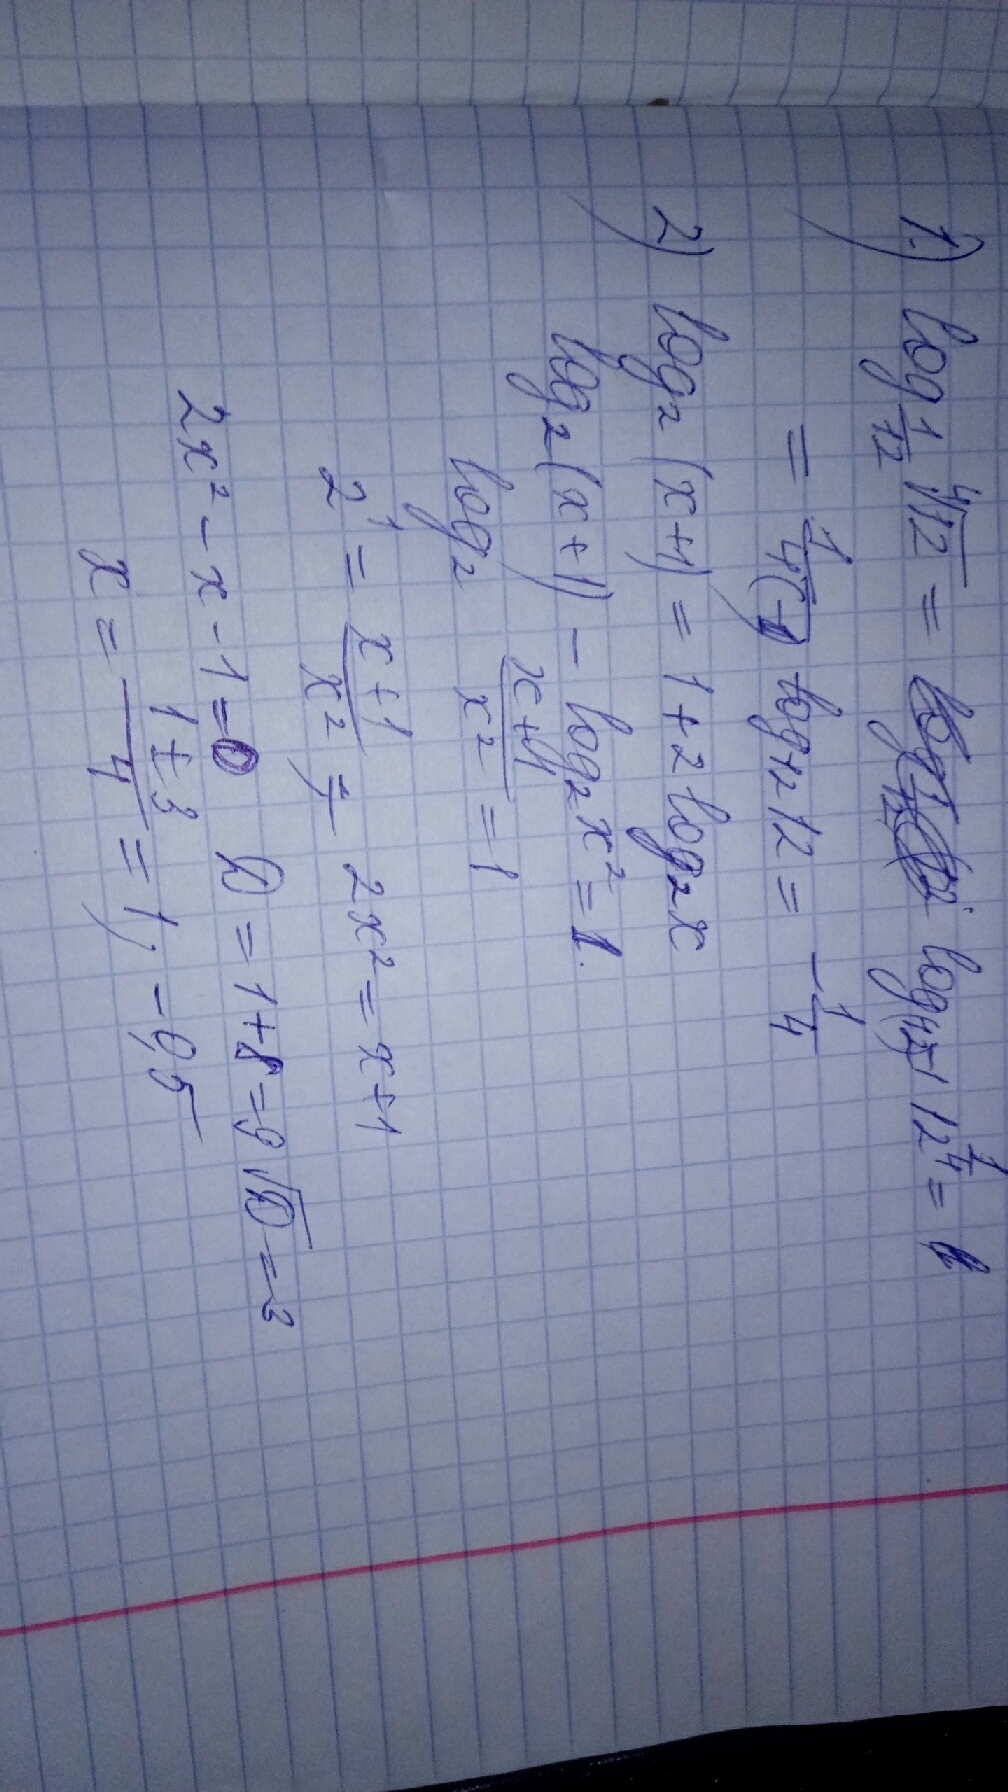 1.) log 1/12 ⁴√12 = log(12)-1 12^1/4 =
= 1/4(-1) log12 12 = -1/4
2) log₂(x+1) = 1+2log₂x
log₂(x+1) - log₂x² = 1.
log₂ x+1/x² = 1
2¹ = x+1/x² 2x² = x+1
2x² - x - 1 = 0 D = 1+8 = 9 √D = 3
x = 1±3/4 = 1; -0,5